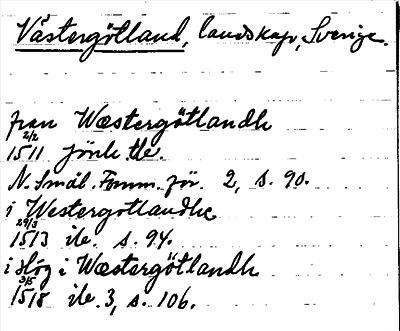 Västergötland, landskap, Sverige.
fran Wæstergötlandh
2/2 1511 Jönk tb.
N. Smål. Fornm. för. 2, s. 90.
i Westergotlandhe
29/3 1513 ib. s. 94.
i Høg i Wæstergötlandh
3/5 1518 ib. 3, s. 106.